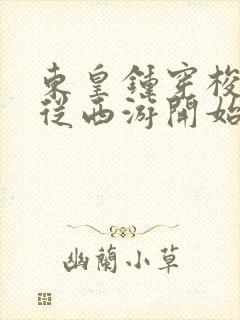 東皇鍾穿梭
從西游開始
幽蘭小草